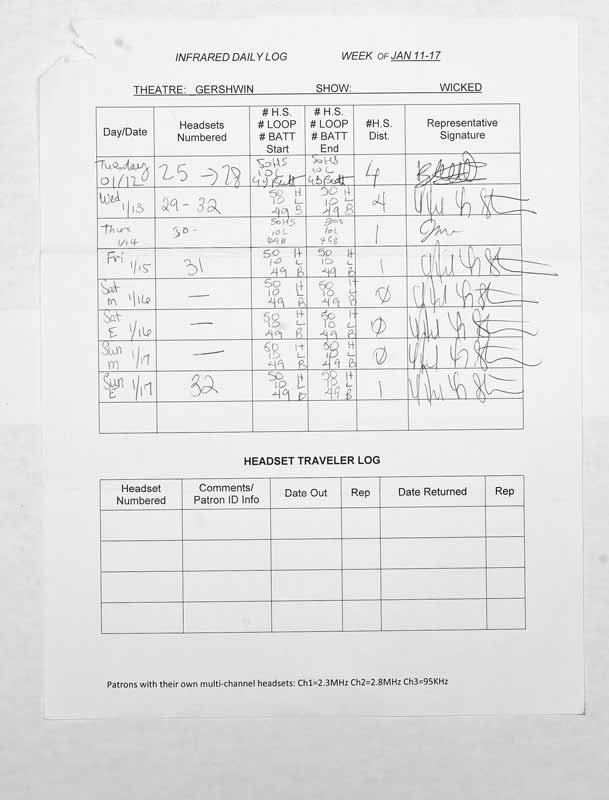 INFRARED DAILY LOG WEEK OF JAN 11-17
THEATRE: GERSHWIN SHOW: WICKED
Day/Date Headsets Numbered # H.S. # LOOP # BATT Start # H.S. # LOOP # BATT End #H.S. Dist. Representative Signature
Tuesday 01/12 25 → 28 50HS 10L 49 Batt 50HS 10L 49 Batt 4
Wed 1/13 29-32 50 H 10 L 49 B 50 H 10 L 49 B 4
Thurs 1/14 30- 50HS 10L 50HS 10L 1
Fri 1/15 31 50 H 10 L 49 B 50 H 10 L 49 B 1
Sat M 1/16 — 50 H 10 L 49 B 50 H 10 L 49 B Ø
Sat E 1/16 — 50 H 10 L 49 B 50 H 10 L 49 B Ø
Sun M 1/17 — 50 H 10 L 49 B 50 H 10 L 49 B Ø
Sun E 1/17 32 50 H 10 L 49 B 50 H 10 L 49 B 1
HEADSET TRAVELER LOG
Headset Numbered Comments/ Patron ID Info Date Out Rep Date Returned Rep
Patrons with their own multi-channel headsets: Ch1=2.3MHz Ch2=2.8MHz Ch3=95KHz